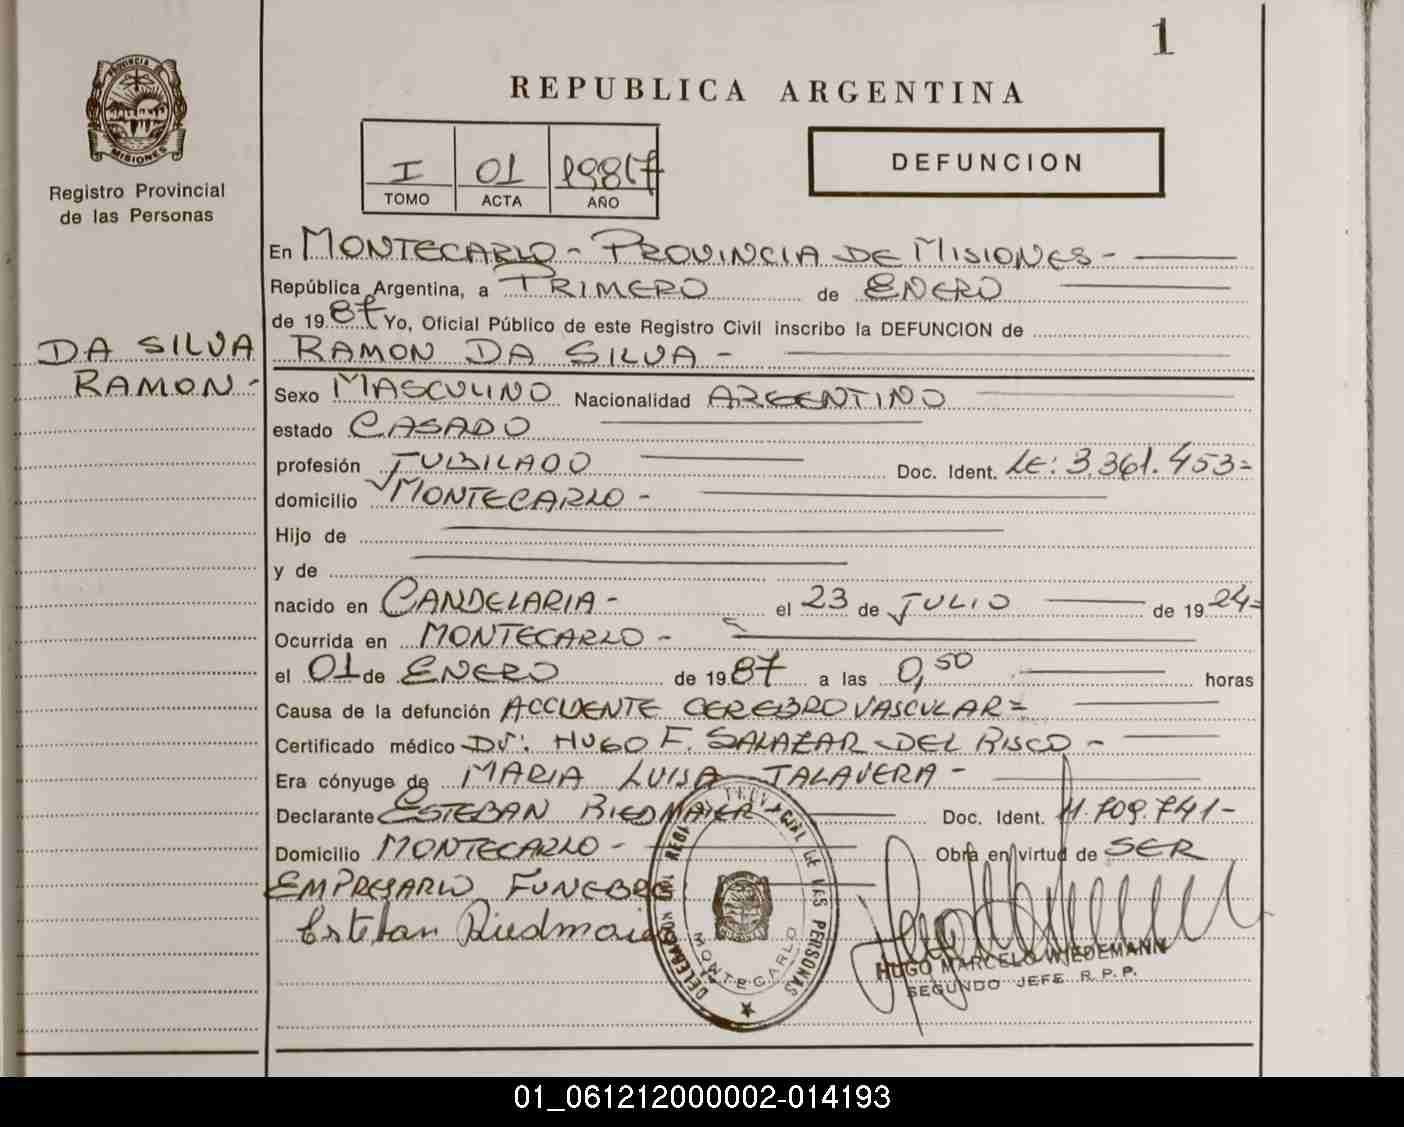 1
PROVINCIA
MISIONES
Registro Provincial
de las Personas
REPUBLICA ARGENTINA
I 01 1987
TOMO ACTA AÑO
DEFUNCION
En MONTECARLO - PROVINCIA DE MISIONES -
República Argentina, a PRIMERO de ENERO
de 1987 Yo, Oficial Público de este Registro Civil inscribo la DEFUNCION de
DA SILVA
RAMON -
RAMON DA SILVA -
Sexo MASCULINO Nacionalidad ARGENTINO
estado CASADO
profesión JUBILADO Doc. Ident. LE: 3.361.453=
domicilio MONTECARLO -
Hijo de
y de
nacido en CANDELARIA - el 23 de JULIO de 1924=
Ocurrida en MONTECARLO -
el 01 de ENERO de 1987 a las 0,50 horas
Causa de la defunción ACCIDENTE CEREBRO VASCULAR =
Certificado médico Dr: HUGO F. SALAZAR DEL RISCO -
Era cónyuge de MARIA LUISA TALAVERA -
Declarante ESTEBAN RIEDMAIER Doc. Ident. 11.709.741-
Domicilio MONTECARLO - Obra en virtud de SER
EMPRESARIO FUNEBRE
Esteban Riedmaier
MONTECARLO
HUGO MARCELO WIEDEMANN
SEGUNDO JEFE R.P.P.
01_061212000002-014193